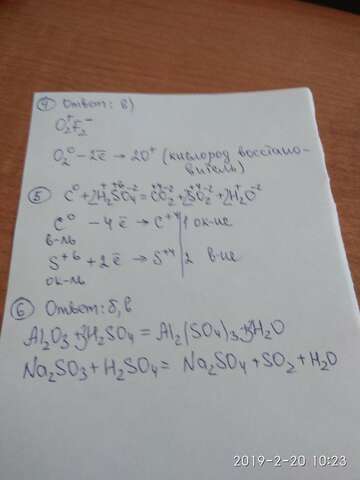 ④ Ответ: в)
O₂⁺F₂⁻
O₂⁰ – 2ē → 2O⁺ (кислород восстано-
витель)
⑤ C⁰ + 2H₂⁺S⁺⁶O₄⁻² = C⁺⁴O₂⁻² + 2S⁺⁴O₂⁻² + 2H₂⁺O⁻²
C⁰ – 4ē → C⁺⁴ | 1 ок-ие
в-ль
S⁺⁶ + 2ē → S⁺⁴ | 2 в-ие
ок-ль
⑥ Ответ: б, в
Al₂O₃ + 3H₂SO₄ = Al₂(SO₄)₃ + 3H₂O
Na₂SO₃ + H₂SO₄ = Na₂SO₄ + SO₂ + H₂O
2019-2-20 10:23